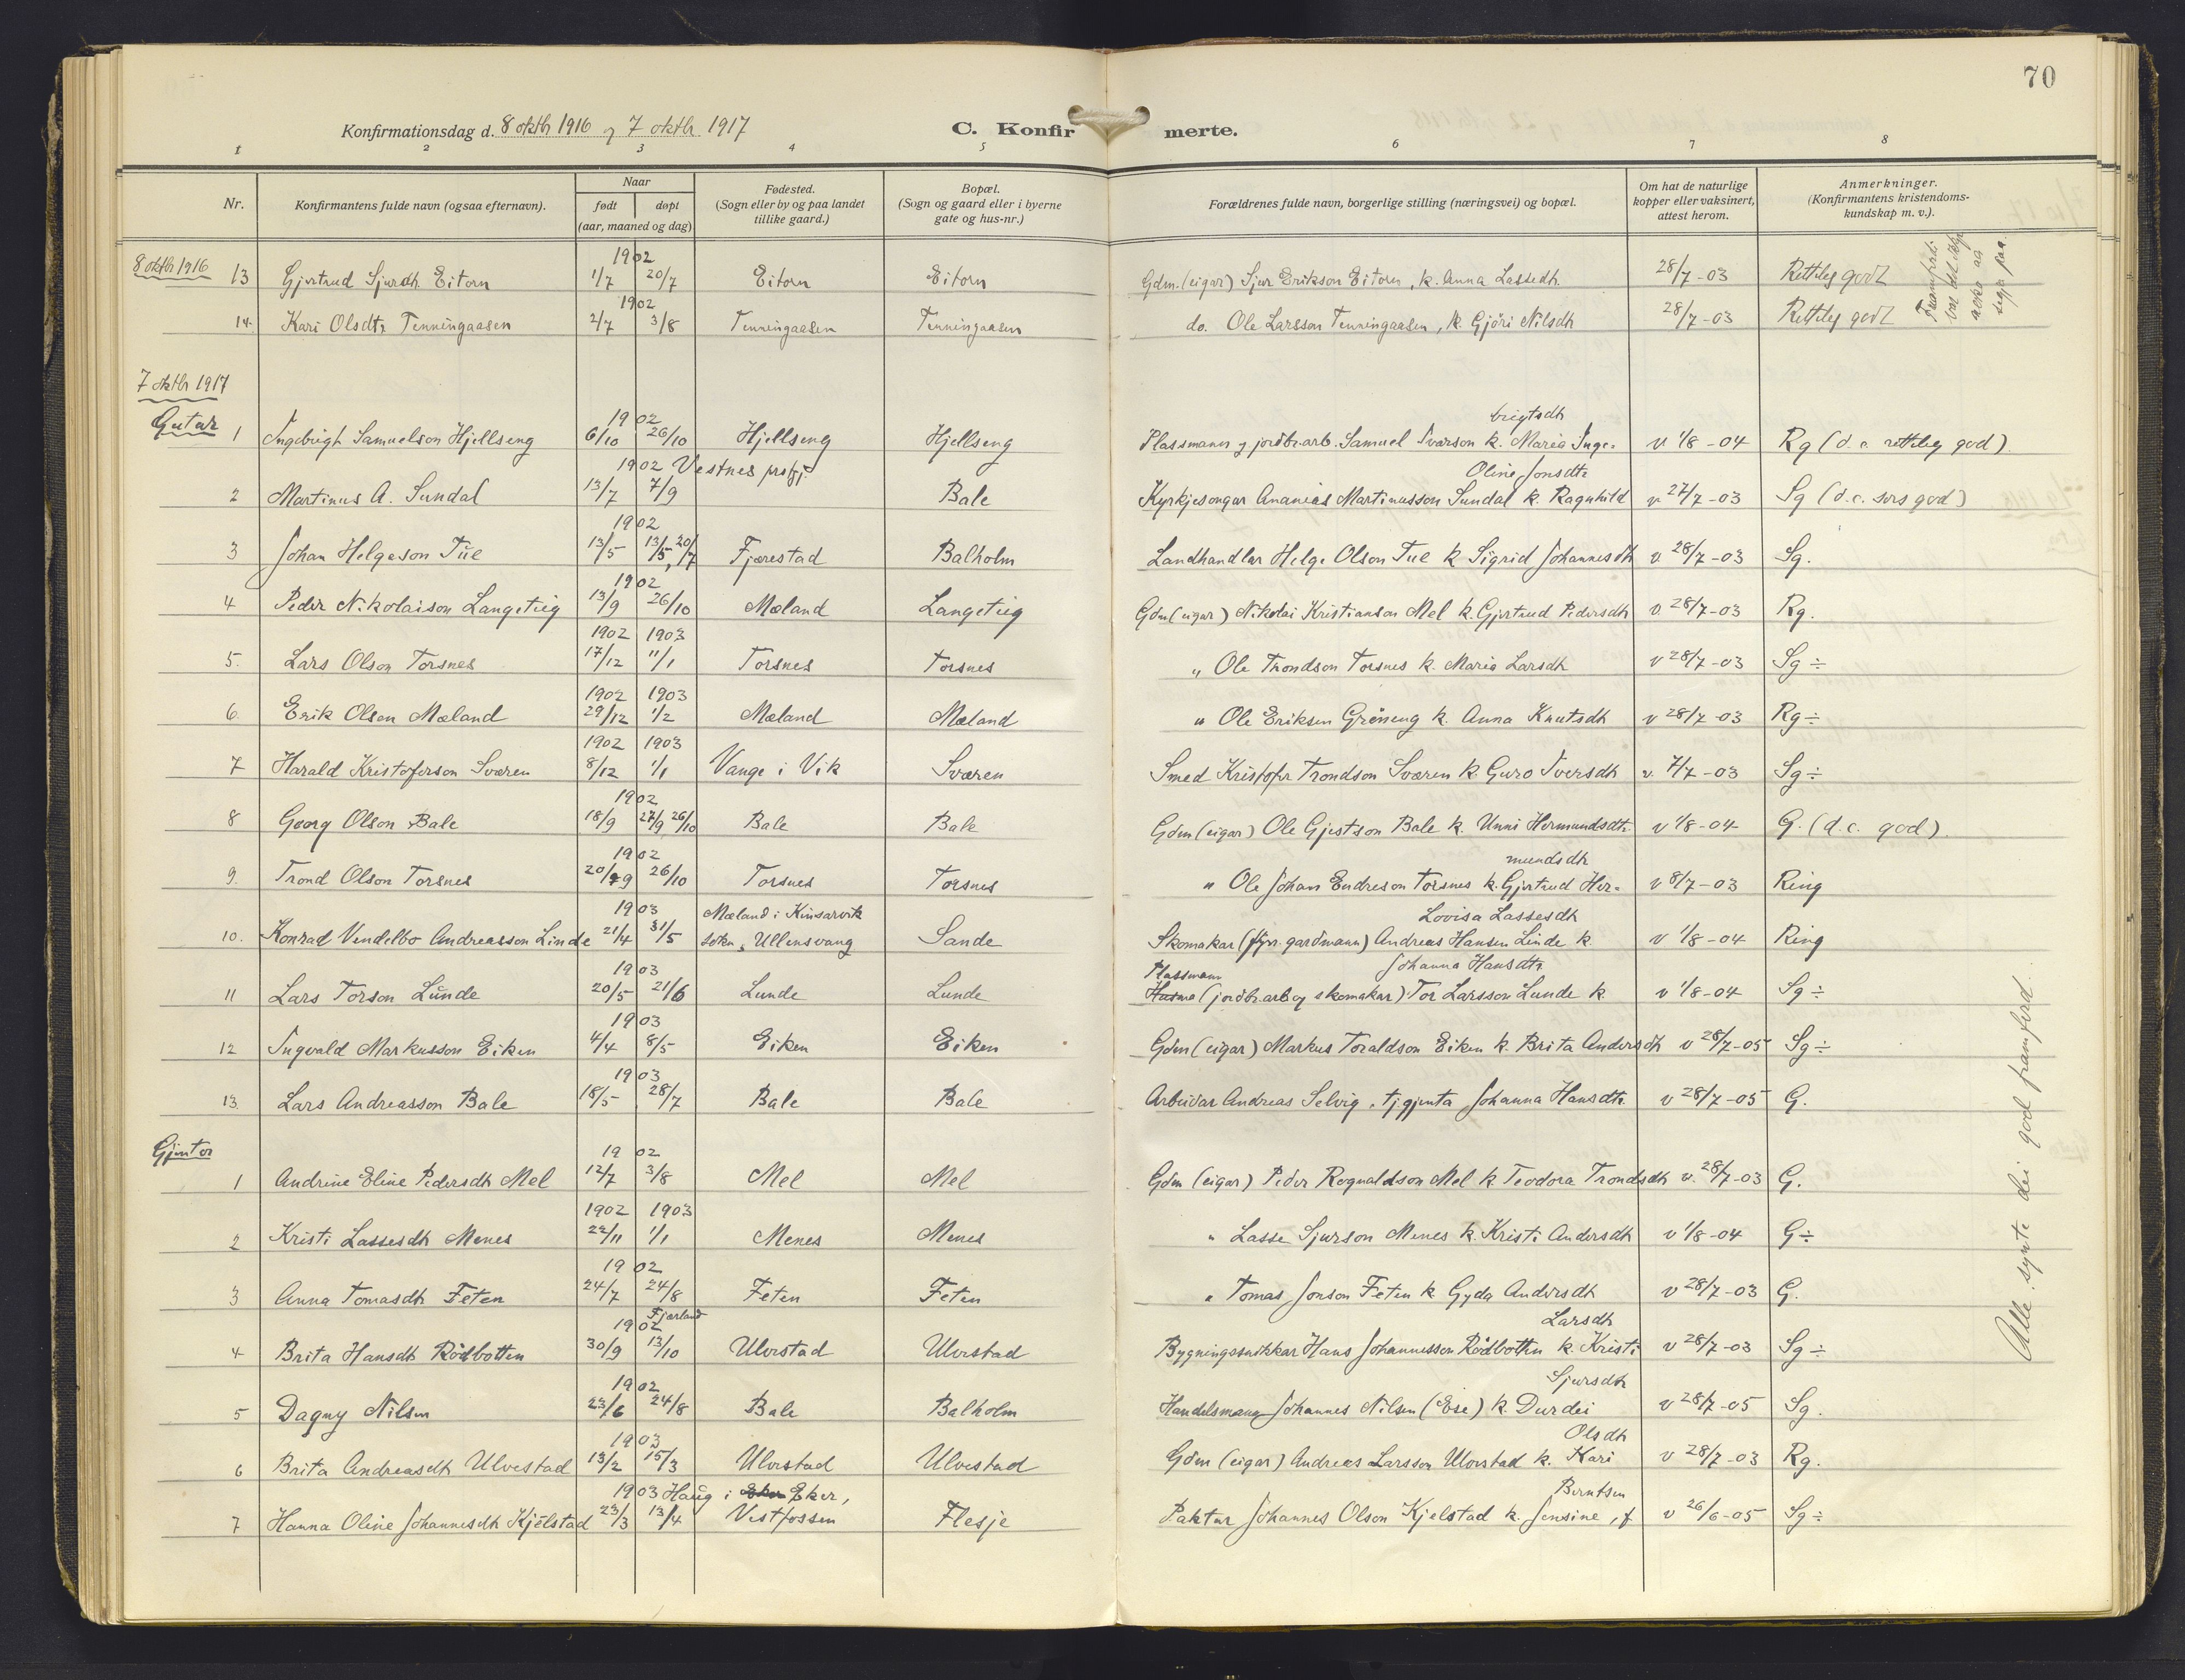 70
Konfirmationsdag d. 8 oktbr 1916 og 7 oktbr 1917 C. Konfirmerte.
1 2 3 4 5 6 7 8
Nr. Konfirmantens fulde navn (ogsaa efternavn). Naar født døpt (aar, maaned og dag) Fødested. (Sogn eller by og paa landet tillike gaard.) Bopæl. (Sogn og gaard eller i byerne gate og hus-nr.) Forældrenes fulde navn, borgerlige stilling (næringsvei) og bopæl. Om hat de naturlige kopper eller vaksinert, attest herom. Anmerkninger. (Konfirmantens kristendoms-kundskap m. v.).
8 oktbr 1916
1902
13 Gjertrud Sjursdtr Eitorn 1/7 20/7 Eitorn Eitorn Gdm. (eigar) Sjur Erikson Eitorn, k. Anna Lassedtr. 28/7-03 Rettleg godt
1902
14. Kari Olsdtr Tenningaasen 2/7 3/8 Tenningaasen Tenningaasen do. Ole Larsson Tenningaasen, k. Gjöri Nilsdtr 28/7-03 Rettleg godt
7 oktbr 1917
Gutar
1902 brigtsdtr
1 Ingebrigt Samuelson Hjellseng 6/10 26/10 Hjellseng Hjellseng Plassmann og jordbr.arb. Samuel Ivarson k. Maria Inge- v 1/8-04 Rg (d.e. rettleg god)
1902 Vestnes prstgj. Oline Jonsdtr
2 Martinus A. Sundal 13/7 7/9 Bale Kyrkjesongar Ananias Martinusson Sundal k. Ragnhild v. 27/7-03 Sg (d.e. sers god)
1902
3 Johan Helgeson Tue 13/5 13/5, 20/7 Fjærestad Balholm Landhandlar Helge Olson Tue k Sigrid Johannesdtr v. 28/7-03 Sg.
1902
4 Peder Nikolaison Langeteig 13/9 26/10 Mæland Langeteig Gdm (eigar) Nikolai Kristianson Mel k. Gjertrud Pedersdtr v. 28/7-03 Rg.
1902 1903
5. Lars Olson Torsnes 17/12 11/1 Torsnes Torsnes " Ole Trondson Torsnes k. Maria Larsdtr v 28/7-03 Sg ÷
1902 1903
6. Erik Olsen Mæland 29/12 1/2 Mæland Mæland " Ole Eriksen Gröneng k. Anna Knutsdtr v 28/7-03 Rg ÷
1902 1903
7 Harald Kristoferson Sværen 8/12 1/1 Vange i Vik Sværen Smed Kristofer Trondson Sværen k. Guro Iversdtr v. 7/7-03 Sg ÷
1902
8 Georg Olson Bale 18/9 27/9 26/10 Bale Bale Gdm (eigar) Ole Gjestson Bale k. Unni Hermundsdtr. v 1/8-04 G. (d.e. god)
1902 mundsdtr
9. Trond Olson Torsnes 20/9 26/10 Torsnes Torsnes " Ole Johan Endreson Torsnes k. Gjertrud Her- v 8/7-03 Ring
1903 Mæland i Kinsarvik Lovisa Lassesdtr
10. Konrad Vendelbo Andreasson Linde 21/4 31/5 sokn, Ullensvang Sande Skomakar (fyrr. gardmann) Andreas Hansen Linde k. v 1/8-04 Ring
1903 Plassmann Johanna Hansdtr.
11 Lars Torson Lunde 20/5 21/6 Lunde Lunde Husma (jordbr.arb. og skomakar) Tor Larsson Lunde k. v 1/8-04 Sg ÷
1903
12 Ingvald Markusson Eiken 4/4 8/5 Eiken Eiken Gdm (eigar) Markus Toraldson Eiken k. Brita Andersdtr v 28/7-05 Sg ÷
1903
13. Lars Andreasson Bale 18/5 28/7 Bale Bale Arbeidar Andreas Selvig, tj.gjenta Johanna Hansdtr v 28/7-05 G.
Gjentor
1902
1 Andrine Eline Pedersdtr Mel 12/7 3/8 Mel Mel Gdm (eigar) Peder Rognaldson Mel k. Teodora Trondsdtr v. 28/7-03 G.
1902 1903
2 Kristi Lassesdtr Menes 22/11 1/1 Menes Menes " Lasse Sjurson Menes k. Kristi Andersdtr v 1/8-04 G ÷
1902
3 Anna Tomasdtr Feten 24/7 24/8 Feten Feten " Tomas Jonson Feten k Gyda Andersdtr v 28/7-03 G.
1902 Fjærland Larsdtr
4 Brita Hansdtr Rödbotten 30/9 13/10 Ulvestad Ulvestad Bygningssnikkar Hans Johannesson Rödbotten k. Kristi v 28/7-03 Sg ÷
1902 Sjursdtr
5 Dagny Nilsen 23/6 24/8 Bale Balholm Handelsmann Johannes Nilsen (Ese) k. Durdei v 28/7-05 Sg.
1903 Olsdtr
6 Brita Andreasdtr Ulvestad 13/2 15/3 Ulvestad Ulvestad Gdm (eigar) Andreas Larsson Ulvestad k. Kari v 28/7-03 Rg.
1903 Haug i Eker, Berntsen
7 Hanna Oline Johannesdtr Kjelstad 23/3 13/4 Vestfossen Flesje Paktar Johannes Olson Kjelstad k. Jensine, f. v 26/6-05 Sg ÷
Alle synte dei god framferd.